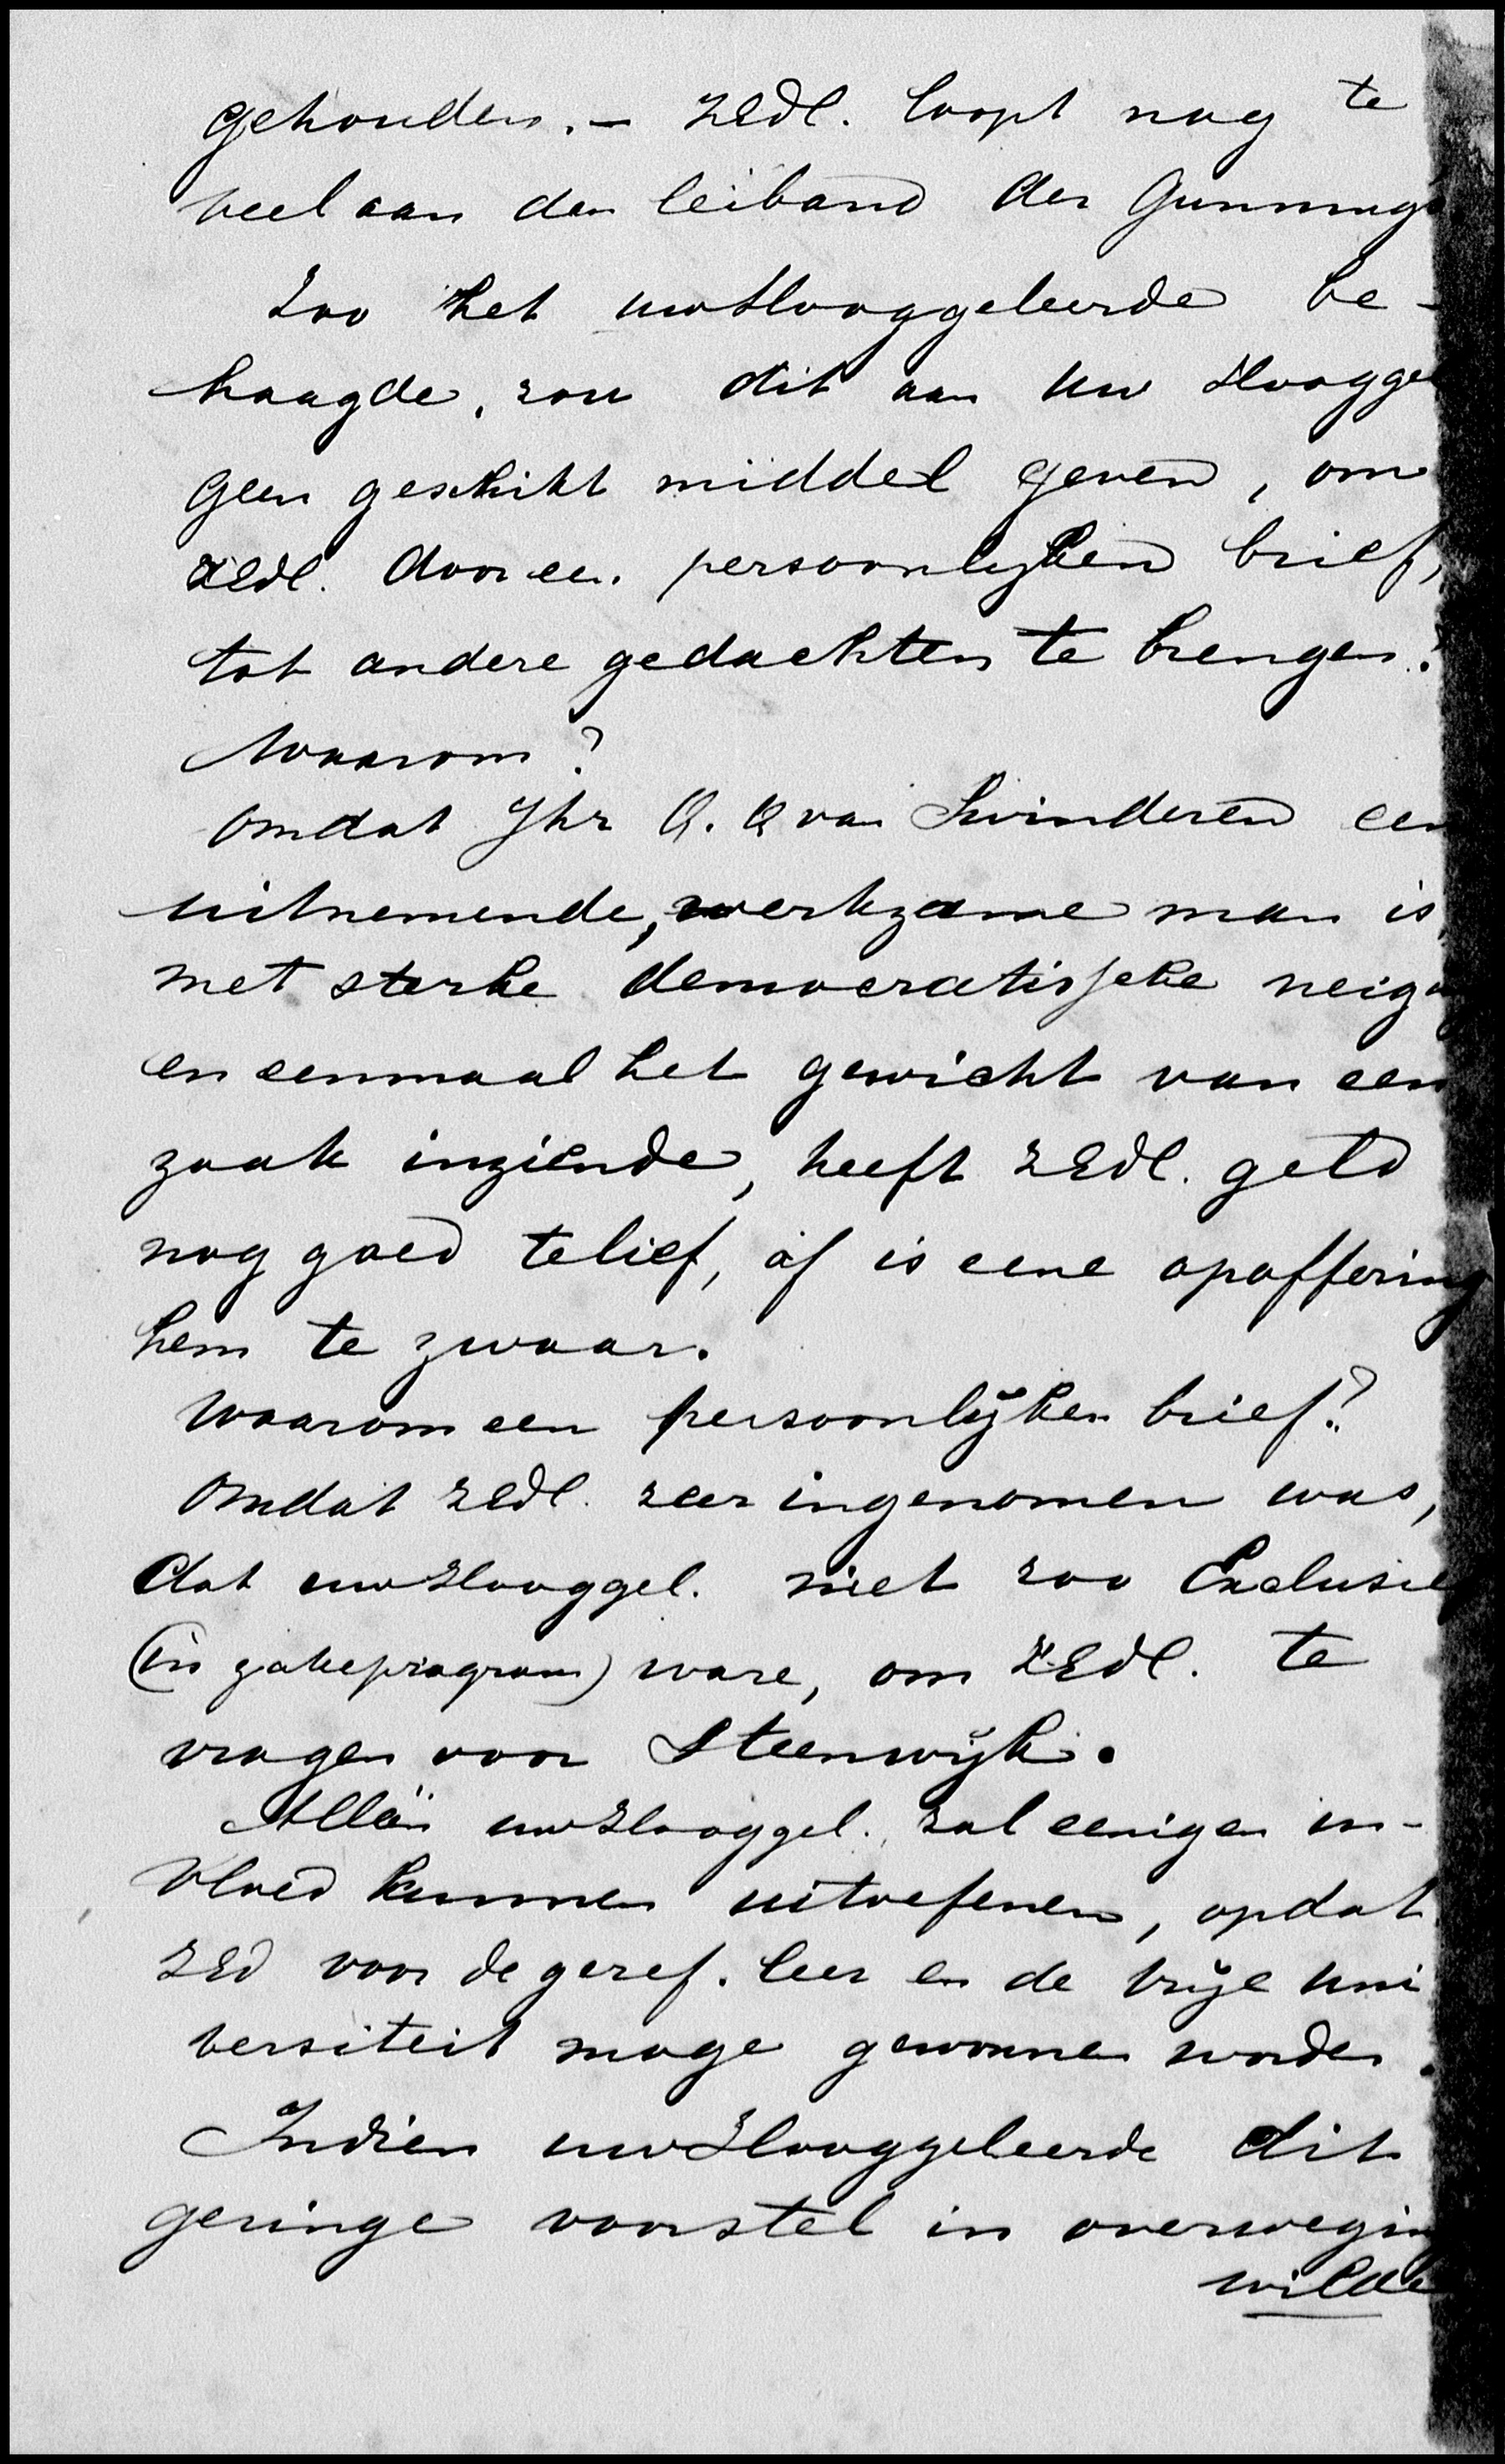 gehouden. — ZEdl. loopt nog te
veel aan den leiband der Gunnings.
Zoo het uw Hooggeleerde be-
haagde, zou dit aan Uw Hooggel
geen geschikt middel geven, om
ZEdl. door een persoonlyken brief,
tot andere gedachten te brengen?
Waarom?
Omdat Jhr Q. Q van Swinderen een
uitnemende, werkzame man is,
met sterke democratissche neig
en eenmaal het gewicht van een
zaak inziende, heeft ZEdl. geld
nog goed te lief, of is eene opoffering
hem te zwaar.
Waarom een persoonlijken brief?
Omdat ZEdl. zeer ingenomen was,
dat uw Hooggel. niet zoo Exclusief
(in zake program) ware, om ZEdl. te
vragen voor Steenwijk.
Alléén uw Hooggel. zal eenigen in-
vloed kunnen uitoefenen, opdat
ZEd voor de geref. leer en de vrije uni
versiteit moge gewonnen worden.
Indien uw Hooggeleerde dit
geringe voorstel in overweging
wilde